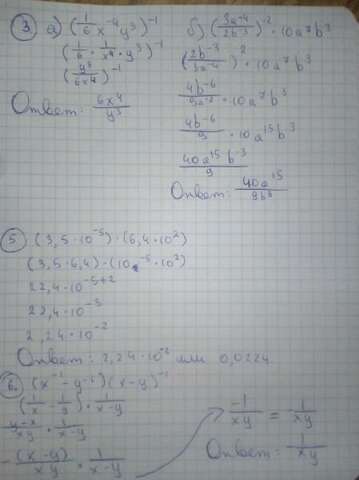 3 а) (1/6 x⁻⁴ y³)⁻¹
(1/6 · 1/x⁴ · y³)⁻¹
(y³/6x⁴)⁻¹
Ответ: 6x⁴/y³
б) (3a⁻⁴/2b⁻³)⁻² · 10a⁷b³
(2b⁻³/3a⁻⁴)² · 10a⁷b³
4b⁻⁶/9a⁻⁸ · 10a⁷b³
4b⁻⁶/9 · 10a¹⁵b³
40a¹⁵b⁻³/9
Ответ: 40a¹⁵/9b³
5 (3,5·10⁻⁵)·(6,4·10²)
(3,5·6,4)·(10⁻⁵·10²)
22,4·10⁻⁵⁺²
22,4·10⁻³
2,24·10⁻²
Ответ: 2,24·10⁻² или 0,0224
6. (x⁻¹ - y⁻¹)(x-y)⁻¹
(1/x - 1/y) · 1/x-y
y-x/xy · 1/x-y
-(x-y)/xy · 1/x-y
-1/xy = 1/xy
Ответ: 1/xy